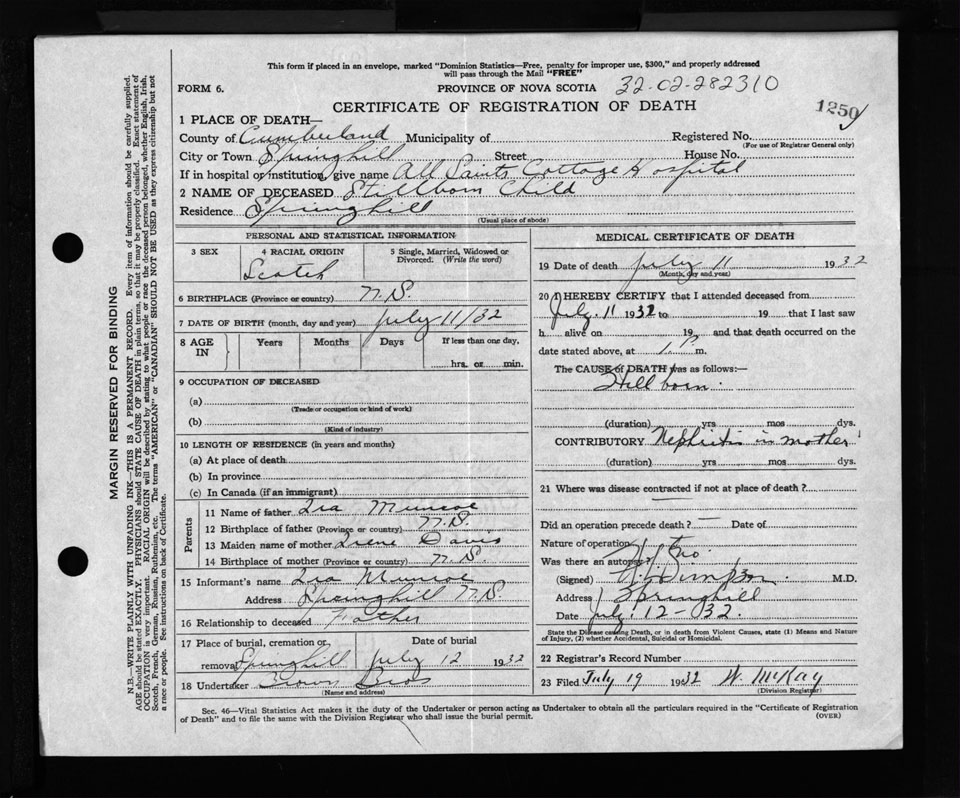 This form if placed in an envelope, marked "Dominion Statistics—Free, penalty for improper use, $300," and properly addressed
will pass through the Mail "FREE"
FORM 6. PROVINCE OF NOVA SCOTIA 32-02-282310
CERTIFICATE OF REGISTRATION OF DEATH 1250
1 PLACE OF DEATH—
County of Cumberland Municipality of Registered No.
(For use of Registrar General only)
City or Town Springhill Street House No.
If in hospital or institution, give name All Saints Cottage Hospital
2 NAME OF DECEASED Stillborn Child
Residence Springhill
(Usual place of abode)
PERSONAL AND STATISTICAL INFORMATION
3 SEX 4 RACIAL ORIGIN 5 Single, Married, Widowed or
Divorced. (Write the word)
Scotch
6 BIRTHPLACE (Province or country) N.S.
7 DATE OF BIRTH (month, day and year) July 11/32
8 AGE IN Years Months Days If less than one day,
hrs. or min.
9 OCCUPATION OF DECEASED
(a)
(Trade or occupation or kind of work)
(b)
(Kind of industry)
10 LENGTH OF RESIDENCE (in years and months)
(a) At place of death
(b) In province
(c) In Canada (if an immigrant)
Parents
11 Name of father Ira Munroe
12 Birthplace of father (Province or country) N.S.
13 Maiden name of mother Irene Davis
14 Birthplace of mother (Province or country) N.S.
15 Informant's name Ira Munroe
Address Springhill N.S.
16 Relationship to deceased Father
17 Place of burial, cremation or Date of burial
removal Springhill July 12 1932
18 Undertaker Brown Bros
(Name and address)
MEDICAL CERTIFICATE OF DEATH
19 Date of death July 11 1932
(Month, day and year)
20 I HEREBY CERTIFY that I attended deceased from
July 11 1932 to 19 that I last saw
h alive on 19 and that death occurred on
date stated above, at 1 P. m.
The CAUSE of DEATH was as follows:—
Stillborn.
(duration) yrs mos dys.
CONTRIBUTORY Nephritis in mother
(duration) yrs mos dys.
21 Where was disease contracted if not at place of death?
Did an operation precede death? — Date of
Nature of operation
Was there an autopsy? No.
(Signed) Simpson M.D.
Address Springhill
Date July 12-32.
State the Disease causing Death, or in death from Violent Causes, state (1) Means and Nature
of Injury, (2) whether Accidental, Suicidal or Homicidal.
22 Registrar's Record Number
23 Filed July 19 1932 W. McKay
(Division Registrar)
Sec. 46—Vital Statistics Act makes it the duty of the Undertaker or person acting as Undertaker to obtain all the particulars required in the "Certificate of Registration
of Death" and to file the same with the Division Registrar who shall issue the burial permit. (OVER)
MARGIN RESERVED FOR BINDING
N.B.—WRITE PLAINLY WITH UNFADING INK—THIS IS A PERMANENT RECORD. Every item of information should be carefully supplied.
AGE should be stated EXACTLY. PHYSICIANS should STATE CAUSE OF DEATH in plain terms, so that it may be properly classified. Exact statement of
OCCUPATION is very important. RACIAL ORIGIN will be described by stating to what people or race the deceased person belonged, whether English, Irish,
Scotch, French, German, Russian, Ruthenian, etc. The terms "AMERICAN" or "CANADIAN" SHOULD NOT BE USED as they express citizenship but not
a race or people. See instructions on back of Certificate.